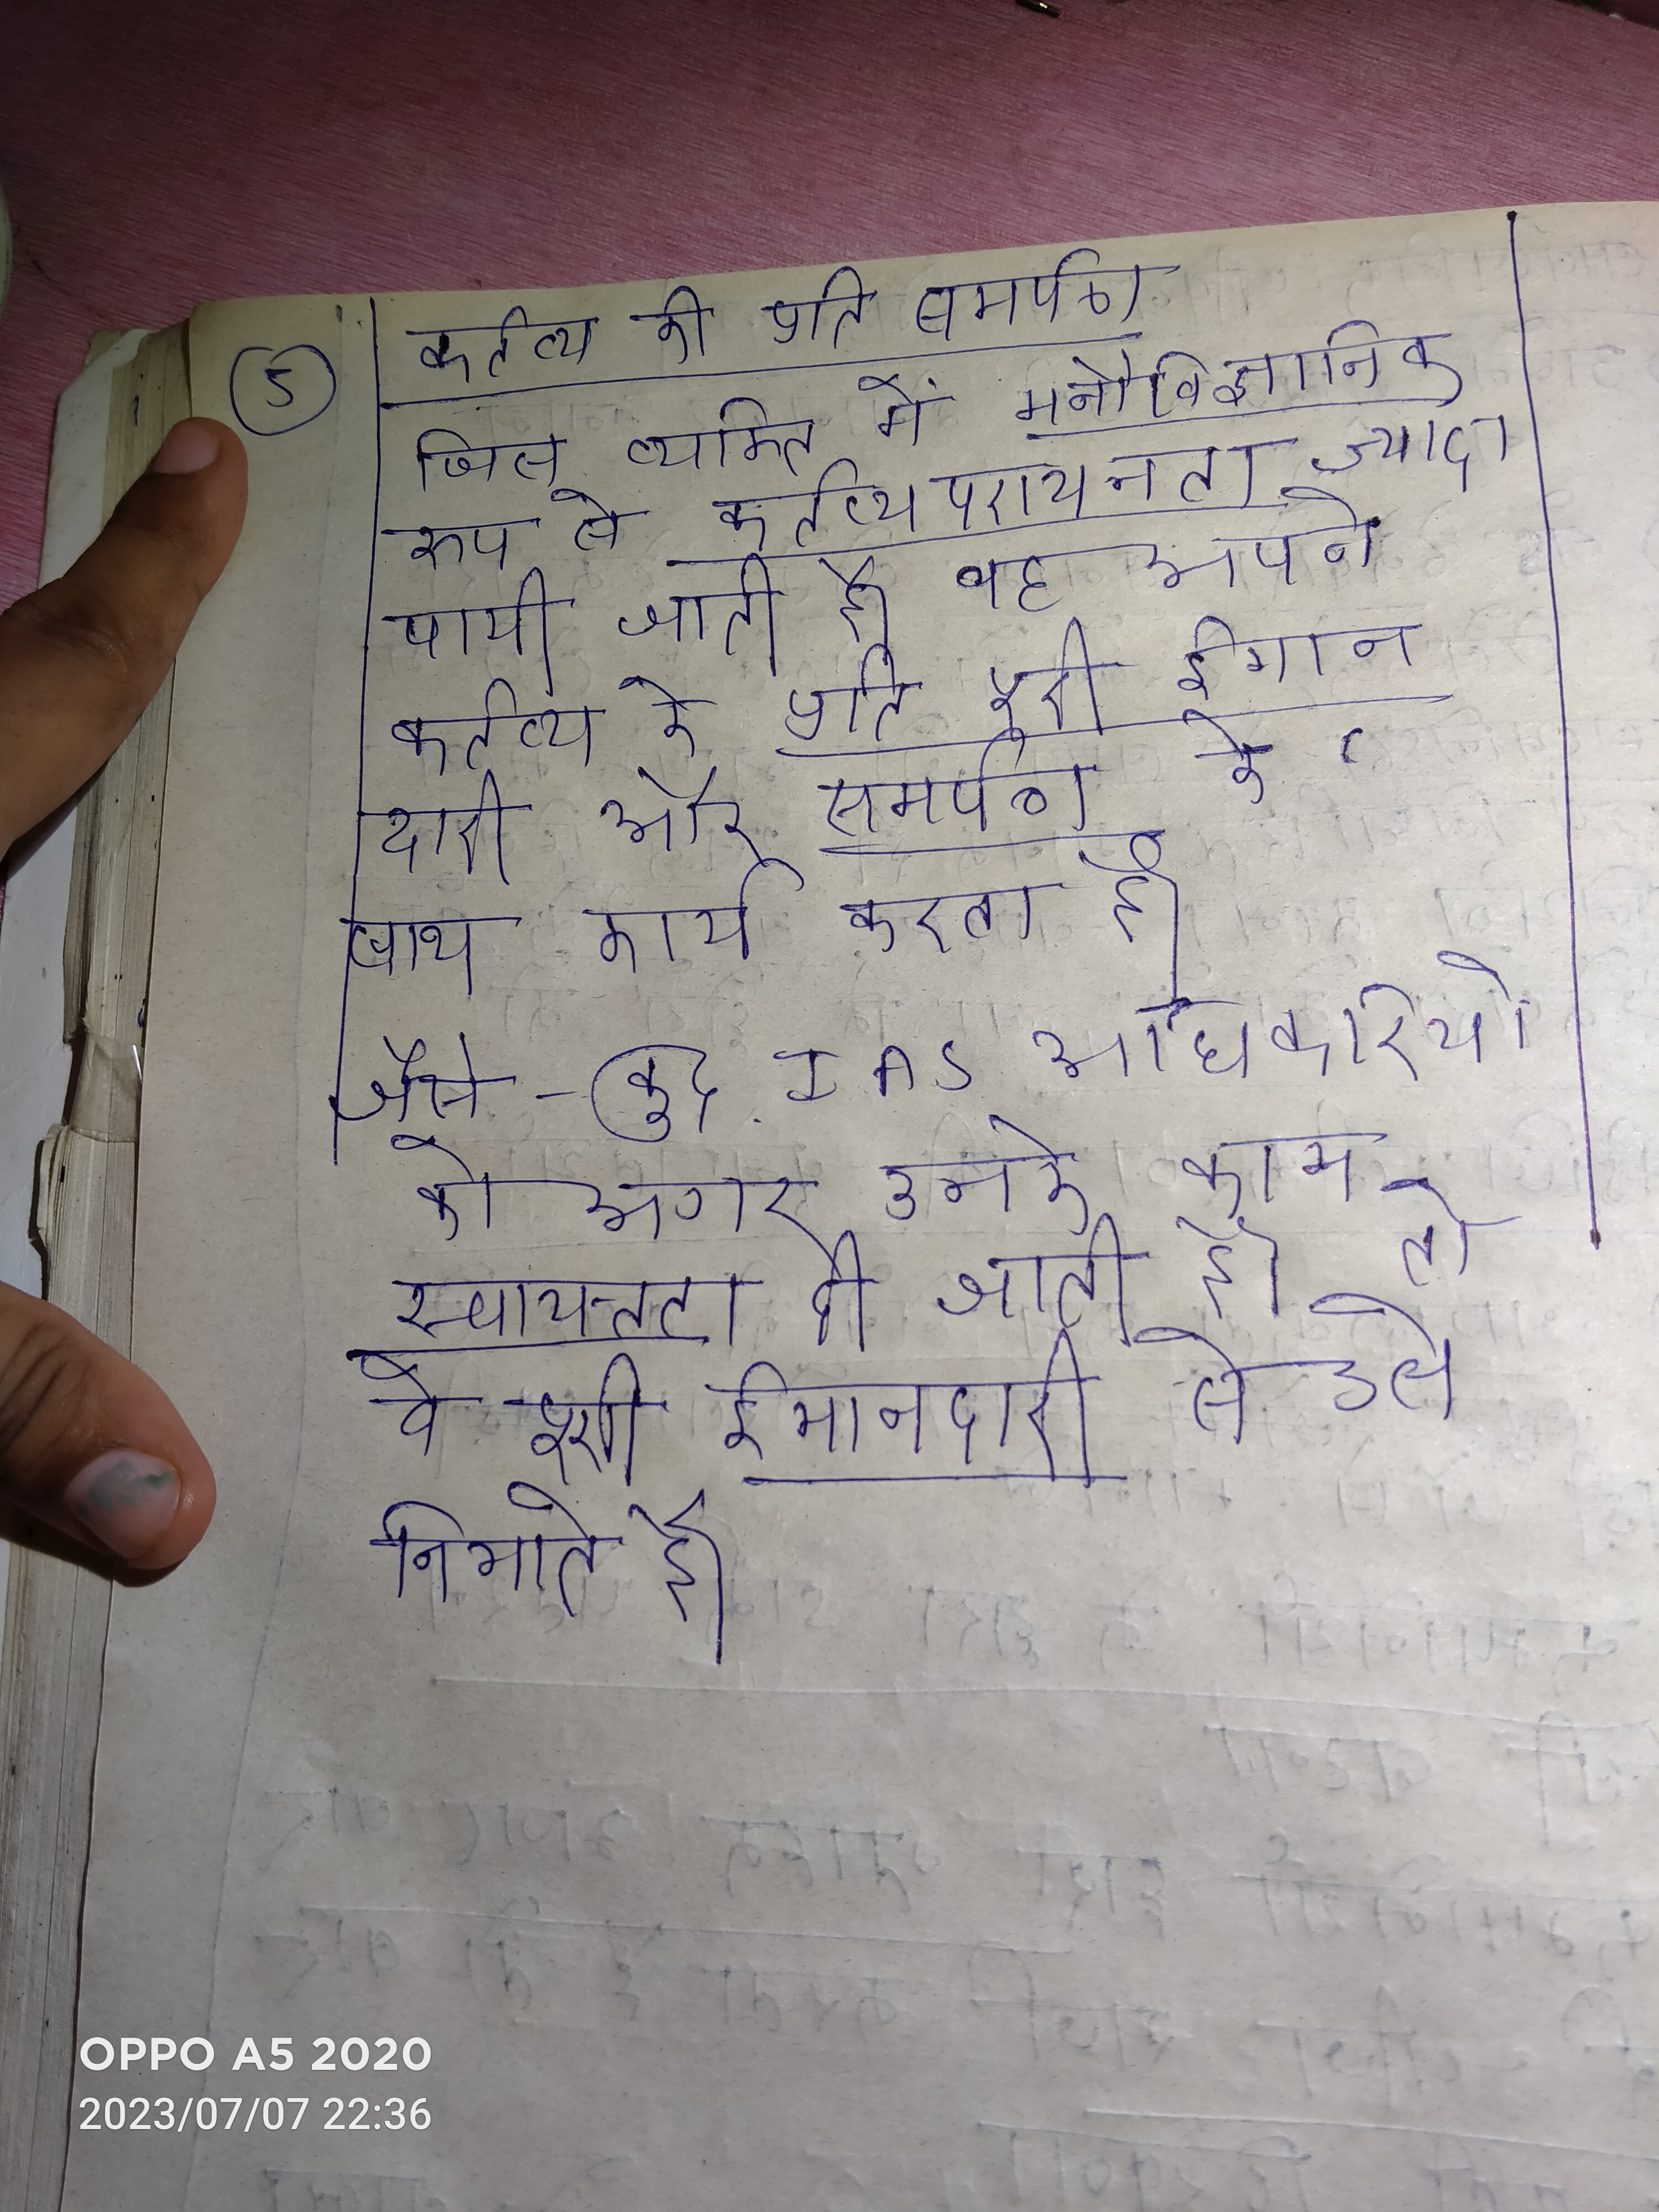 5
कर्तव्य की प्रति समर्पण
जिस व्यक्ति में मनोविज्ञानिक
रुप से कर्तव्यपरायनता ज्यादा
पायी जाती है वह अपने
कर्तव्य के प्रति पूरी ईमान
दारी और समर्पण के
साथ कार्य करता है
जैसे - कुछ IAS अधिकारियो
को अगर उनके काम
स्वायत्तता दी जाती है तो
वे पूरी ईमानदारी से उसे
निभाते है
OPPO A5 2020
2023/07/07 22:36